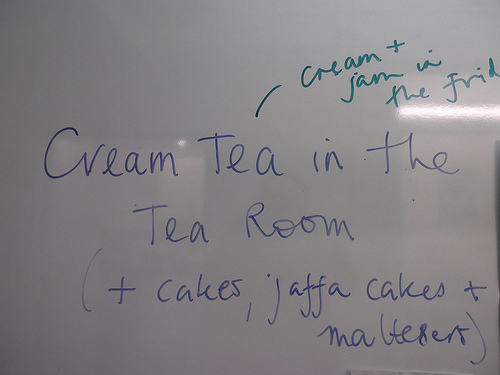 cream +
jam in
the frid
Cream Tea in the
Tea Room
(+ cakes, jaffa cakes +
maltesers)